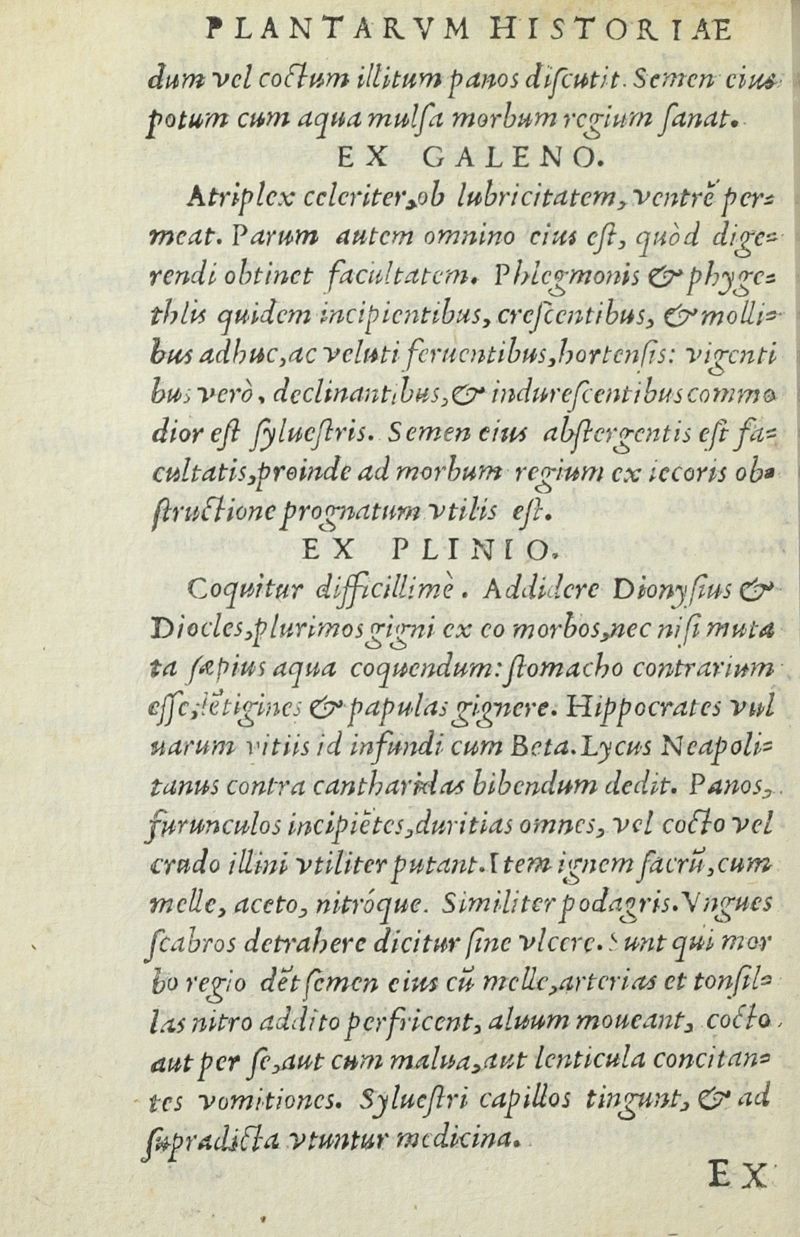 PLANTARVM HISTORIAE
dum vel coctum illitum panos discutit. Semen eius
potum cum aqua mulsa morbum regium sanat.
EX GALENO.
Atriplex celeriter, ob lubricitatem, ventrē per=
meat. Parum autem omnino eius est, quòd dige=
rendi obtinet facultatem. Phlegmonis & phyge=
thlis quidem incipientibus, crescentibus, & molli=
bus adhuc, ac veluti feruentibus, hortensis: vigenti
bus verò, declinantibus, & indurescentibus commo
dior est syluestris. Semen eius abstergentis est fa=
cultatis, proinde ad morbum regium ex iecoris ob=
structione prognatum vtilis est.
EX PLINIO.
Coquitur difficillimè. Addidere Dionysius &
Diocles, plurimos gigni ex eo morbos, nec nisi muta
ta sæpius aqua coquendum: stomacho contrarium
esse, lētigines & papulas gignere. Hippocrates vul
uarum vitiis id infundi cum Beta. Lycus Neapoli=
tanus contra cantharidas bibendum dedit. Panos,
furunculos incipiētes, duritias omnes, vel cocto vel
crudo illini vtiliter putant. Item ignem sacrū, cum
melle, aceto, nitróque. Similiter podagris. Vngues
scabros detrahere dicitur sine vlcere. Sunt qui mor
bo regio dēt semen eius cū melle, arterias et tonsil=
las nitro addito perfricent, aluum moueant, cocto,
aut per se, aut cum malua, aut lenticula concitan=
tes vomitiones. Syluestri capillos tingunt, & ad
supradicta vtuntur medicina.
EX